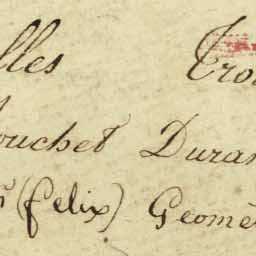 lles Tro
ouchet Duran
(felix) Geomè